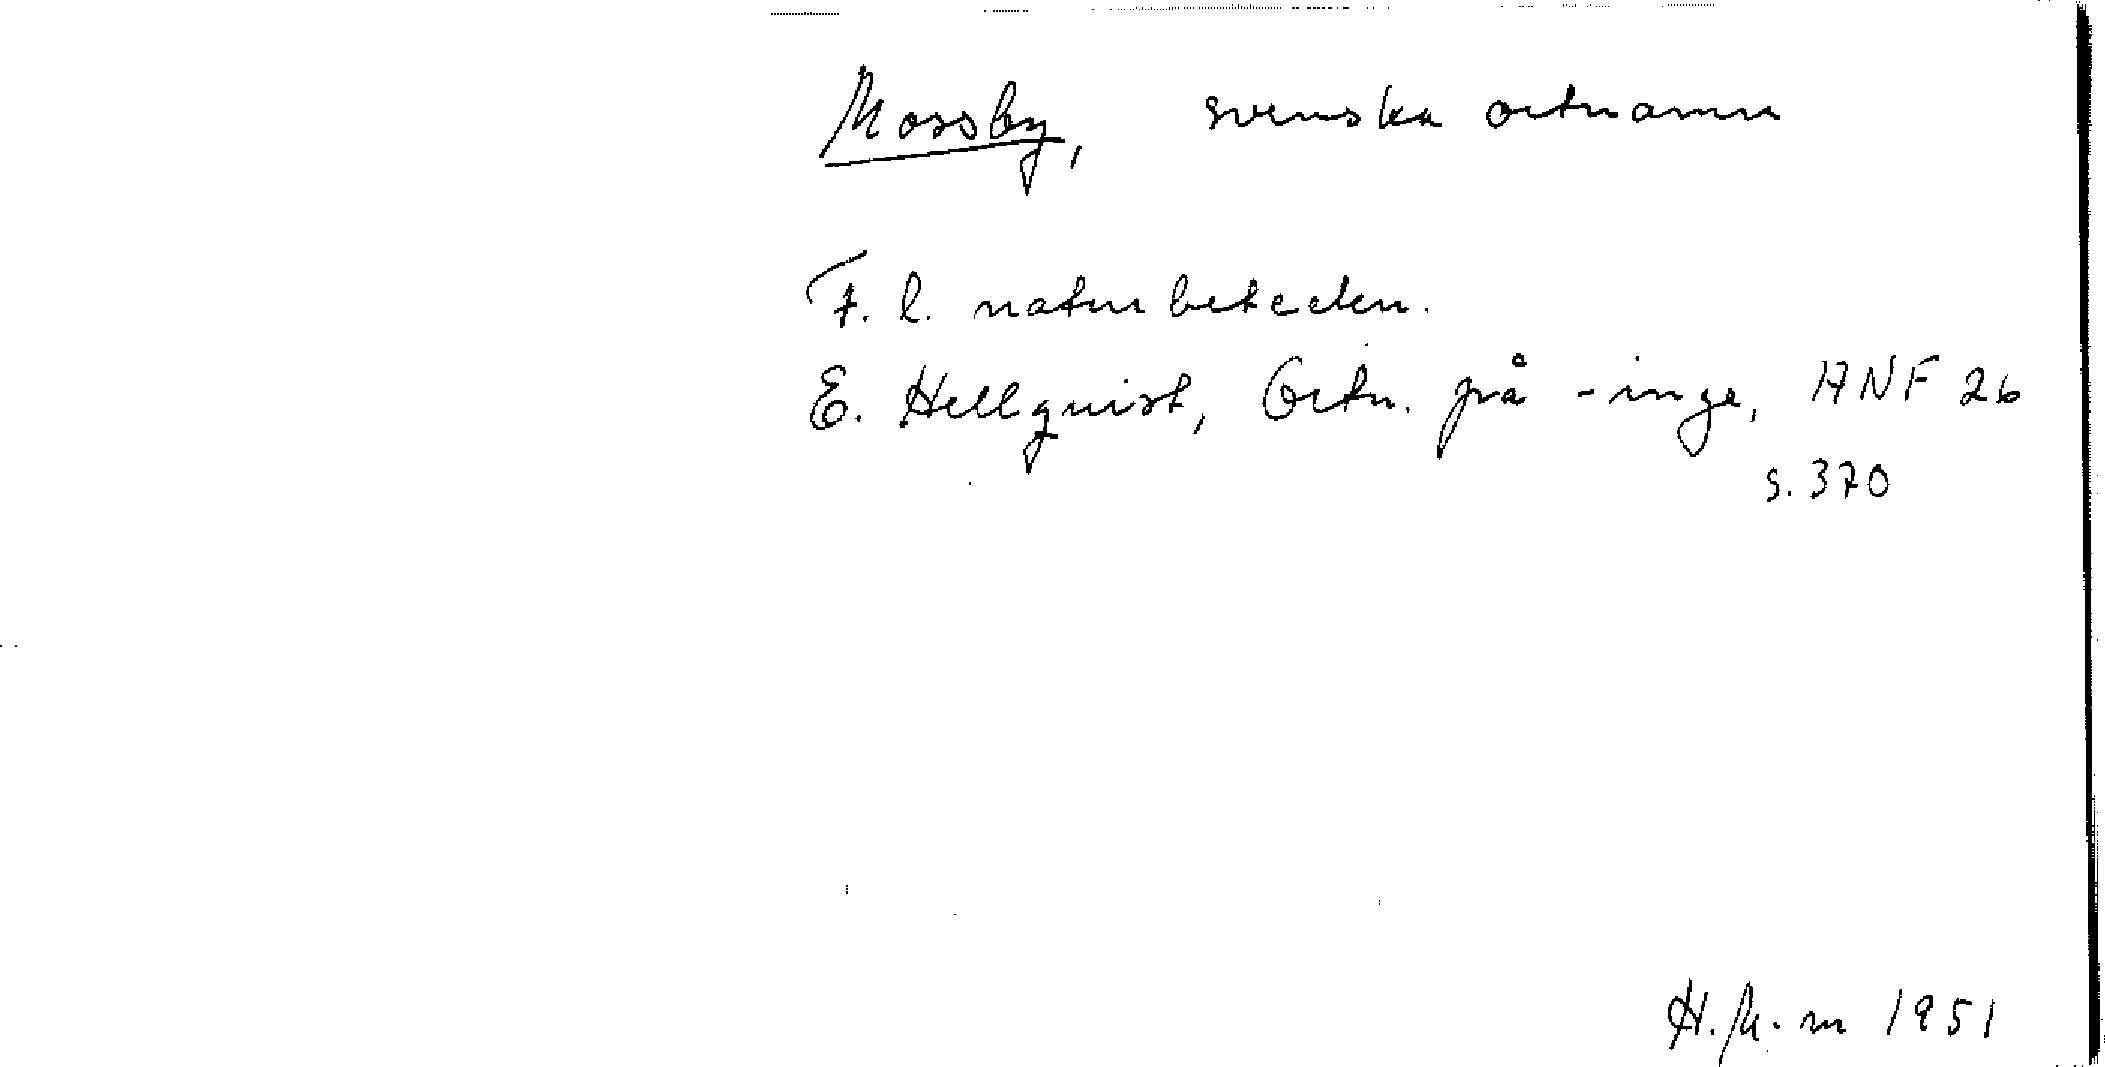 Mossby, svenska ortnamn
F. l. naturbeteckn.
E. Hellquist, Ortn. på -inge, ANF 26
s. 370
H. M-m 1951